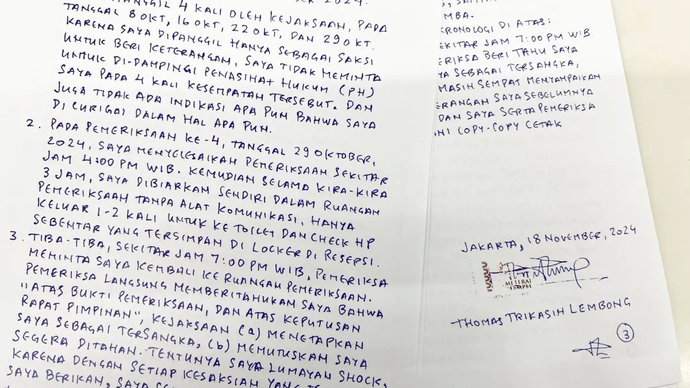 GIL 4 KALI OLEH KEJAKSAAN, PADA
TANGGAL 8 OKT, 16 OKT, 22 OKT, DAN 29 OKT.
KARENA SAYA DIPANGGIL HANYA SEBAGAI SAKSI
UNTUK BERI KETERANGAN, SAYA TIDAK MEMINTA
UNTUK DI-DAMPINGI PENASIHAT HUKUM (PH)
SAYA PADA 4 KALI KESEMPATAN TERSEBUT. DAN
JUGA TIDAK ADA INDIKASI APA PUN BAHWA SAYA
DI CURIGAI DALAM HAL APA PUN.
2. PADA PEMERIKSAAN KE-4, TANGGAL 29 OKTOBER,
2024, SAYA MENYELESAIKAN PEMERIKSAAN SEKITAR
JAM 4:00 PM WIB. KEMUDIAN SELAMA KIRA-KIRA
3 JAM, SAYA DIBIARKAN SENDIRI DALAM RUANGAN
PEMERIKSAAN TANPA ALAT KOMUNIKASI, HANYA
KELUAR 1-2 KALI UNTUK KE TOILET DAN CHECK HP
SEBENTAR YANG TERSIMPAN DI LOCKER DI RESEPSI.
3. TIBA-TIBA, SEKITAR JAM 7:00 PM WIB, PEMERIKSA
MEMINTA SAYA KEMBALI KE RUANGAN PEMERIKSAAN.
PEMERIKSA LANGSUNG MEMBERITAHUKAN SAYA BAHWA
"ATAS BUKTI PEMERIKSAAN, DAN ATAS KEPUTUSAN
RAPAT PIMPINAN", KEJAKSAAN (a) MENETAPKAN
SAYA SEBAGAI TERSANGKA, (b) MEMUTUSKAN SAYA
SEGERA DITAHAN. TENTUNYA SAYA LUMAYAN SHOCK,
KARENA DENGAN SETIAP KESAKSIAN YANG
SAYA BERIKAN, SAYA
MBA.
RONOLOGI DI ATAS:
EKITAR JAM 7:00 PM WIB
ERIKSA BERI TAHU SAYA
YA SEBAGAI TERSANGKA,
MASIH SEMPAT MENYAMPAIKAN
ERANGAN SAYA SEBELUMNYA
DAN SAYA SERTA PEMERIKSA
NI COPY-COPY CETAK
JAKARTA, 18 NOVEMBER, 2024
METERAI
TEMPEL
THOMAS TRIKASIH LEMBONG
3